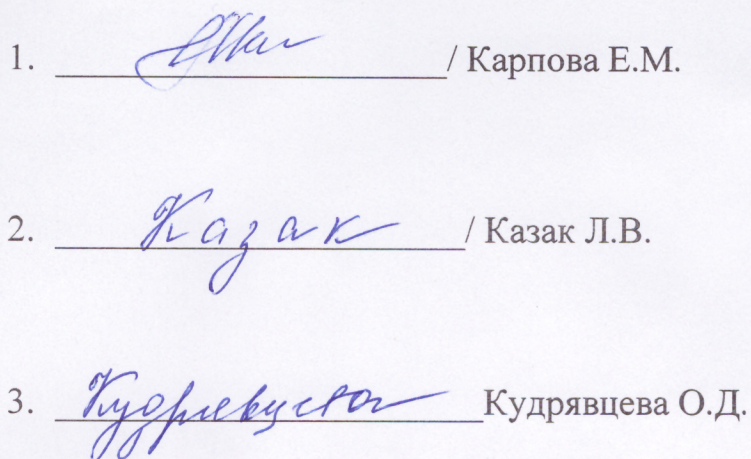 1. / Карпова Е.М.
2. Казак / Казак Л.В.
3. Кудрявцева Кудрявцева О.Д.